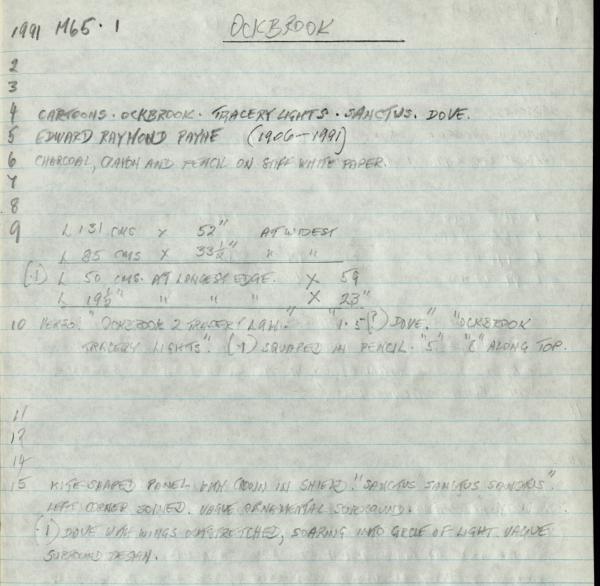 1991 M65.1 OCKBROOK
2
3
4 CARTOONS. OCKBROOK. TRACERY LIGHTS. SANCTUS. DOVE.
5 EDWARD RAYMOND PAYNE (1906-1991)
6 CHARCOAL, CRAYON AND PENCIL ON STIFF WHITE PAPER.
7
8
9 L 131 CMS X 52" AT WIDEST
L 85 CMS X 33½" " "
(.1) L 50 CMS. AT LONGEST EDGE. X 59
L 19½" " " " X 23"
10 VERSO. "OCKBROOK 2 TRACERY " "1.5(?) DOVE." "OCKBROOK
TRACERY LIGHTS". (.1) SQUARED IN PENCIL. "5" "6" ALONG TOP.
11
12
14
15 KITE-SHAPED PANEL WITH CROWN IN SHIELD. "SANCTUS SANCTUS SANCTUS".
LEFT CORNER JOINED. VAGUE ORNAMENTAL SURROUND.
(.1) DOVE WITH WINGS OUTSTRETCHED, SOARING INTO CIRCLE OF LIGHT. VAGUE
SURROUND DESIGN.